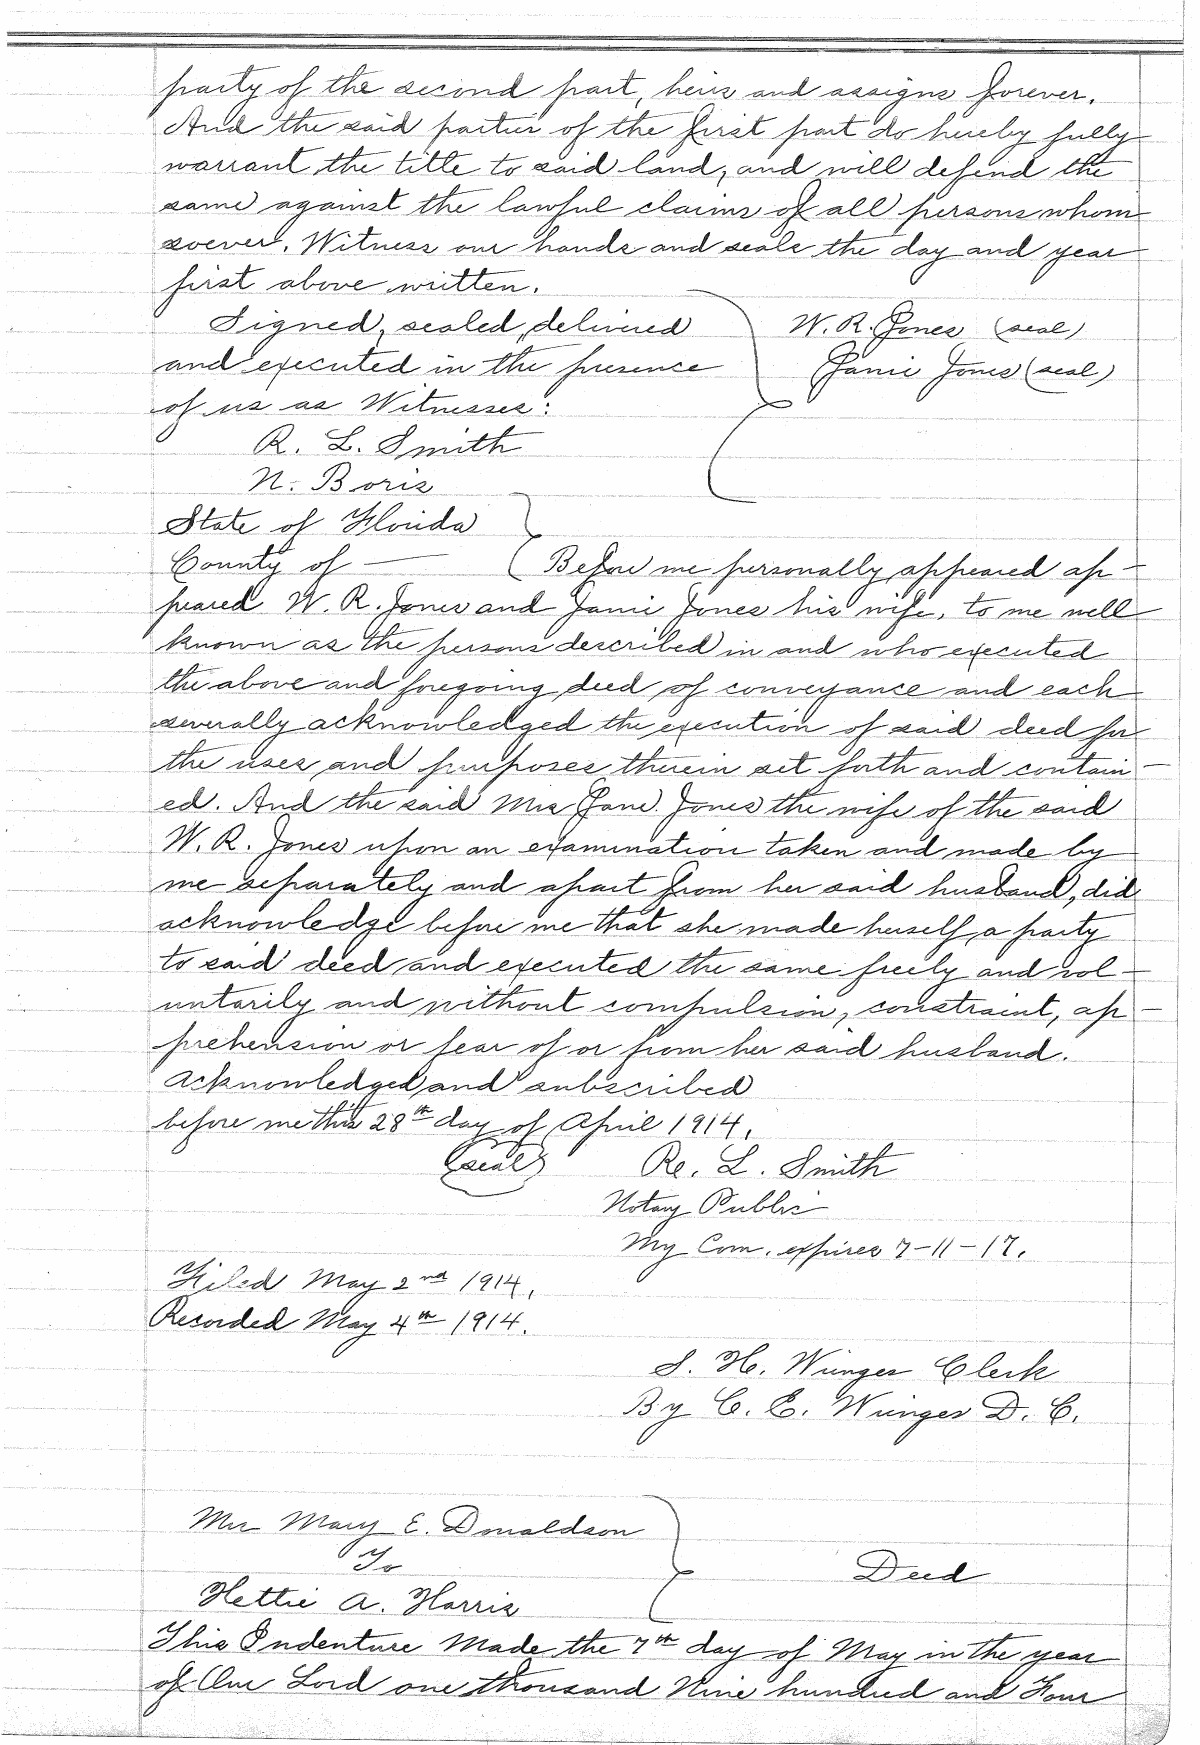 party of the second part, heirs and assigns forever.
And the said parties of the first part do hereby fully
warrant the title to said land, and will defend the
same against the lawful claims of all persons whom
soever. Witness our hands and seals the day and year
first above written.
Signed, sealed, delivered
and executed in the presence
of us as Witnesses:
W. R. Jones (seal)
Janie Jones (seal)
R. L. Smith
N. Boris
State of Florida
County of — Before me personally appeared ap-
peared W. R. Jones and Janie Jones his wife, to me well
known as the persons described in and who executed
the above and foregoing deed of conveyance and each
severally acknowledged the execution of said deed for
the uses and purposes therein set forth and contain-
ed. And the said Mrs Jane Jones the wife of the said
W. R. Jones upon an examination taken and made by
me separately and apart from her said husband, did
acknowledge before me that she made herself a party
to said deed and executed the same freely and vol-
untarily and without compulsion, constraint, ap-
prehension or fear of or from her said husband.
Acknowledged and subscribed
before me this 28th day of April 1914.
(seal) R. L. Smith
Notary Public
My Com. expires 7-11-17.
Filed May 2nd 1914.
Recorded May 4th 1914.
S. H. Wunger Clerk
By C. E. Wunger D. C.
Mrs Mary E. Donaldson
To
Deed
Hettie A. Harris
This Indenture Made the 7th day of May in the year
of Our Lord one thousand Nine hundred and Four